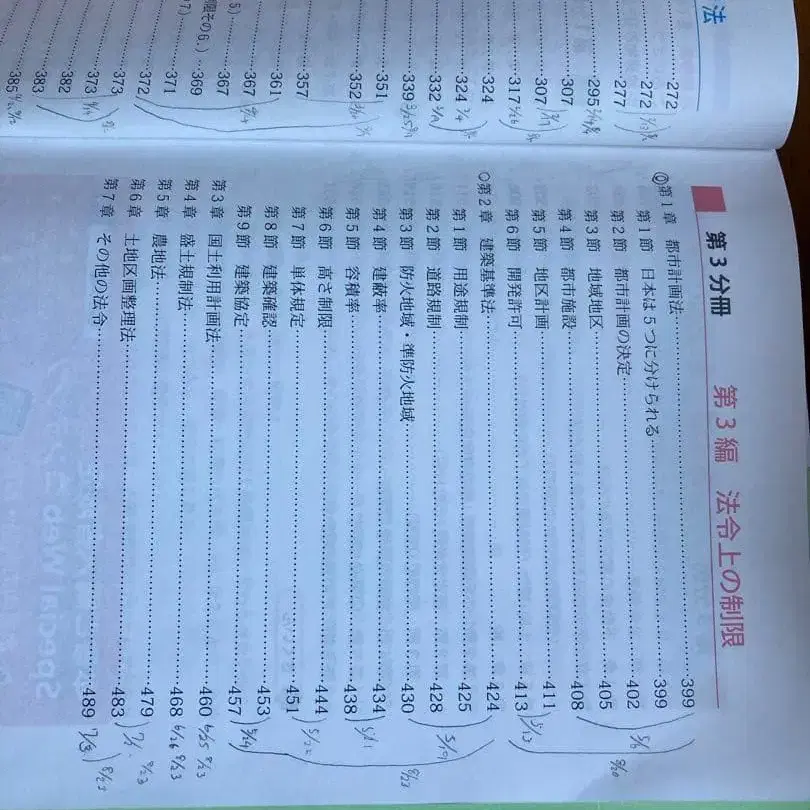 法
272
272
277
295
307
307
317
324
324
332
339
351
352
357
361
367
367
369
371
372
373
373
382
383
385
第3分冊 第3編 法令上の制限
◎第1章 都市計画法 399
第1節 日本は5つに分けられる 399
第2節 都市計画の決定 402
第3節 地域地区 405
第4節 都市施設 408
第5節 地区計画 411
第6節 開発許可 413
○第2章 建築基準法 424
第1節 用途規制 425
第2節 道路規制 428
第3節 防火地域・準防火地域 430
第4節 建蔽率 434
第5節 容積率 438
第6節 高さ制限 444
第7節 単体規定 451
第8節 建築確認 453
第9節 建築協定 457
第3章 国土利用計画法 460 6/25 8/23
第4章 盛土規制法 468 6/26 8/23
第5章 農地法 479
第6章 土地区画整理法 483
第7章 その他の法令 489
5/6
5/12
8/20
5/19
5/21
5/22
5/24
8/23